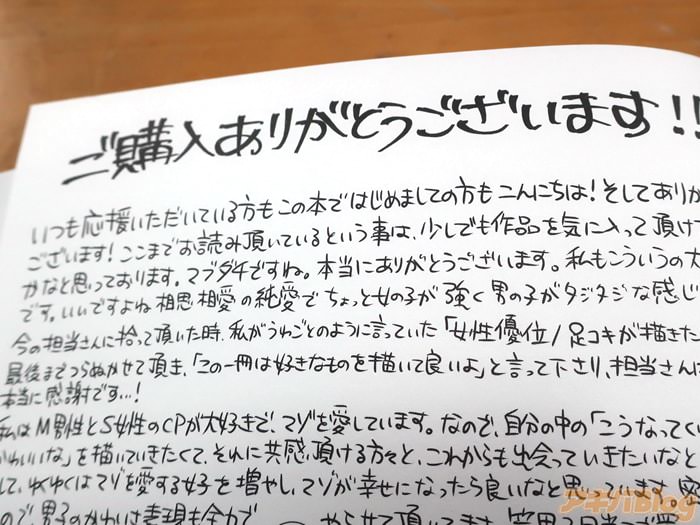 ご購入ありがとうございます!!
いつも応援いただいている方もこの本ではじめましての方もこんにちは!そしてありが
ございます!ここまでお読み頂いているという事は、少しでも作品を気に入って頂けて
かなと思っております。マブダチですね。本当にありがとうございます。私もこういうの大
です。いいですよね相思相愛の純愛でちょっと女の子が強く男の子がタジタジな感じ
今の担当さんに拾って頂いた時、私がうわごとのように言っていた「女性優位/足コキが描きた
最後までつらぬかせて頂き、「この一冊は好きなものを描いて良いよ」と言って下さり、担当さんに
本当に感謝です…!
私はM男性とS女性のCPが大好きで、マゾを愛しています。なので、自分の中の「こうなってくれ
かわいいな」を描いていきたくて、それに共感頂ける方々と、これからも出会っていきたいなと
して、ゆくゆくはマゾを愛する女子を増やし、マゾが幸せになったら良いなと思っています。
ので、男子のかわいさ表現も全力で
やらせて頂いて
アキバBlog